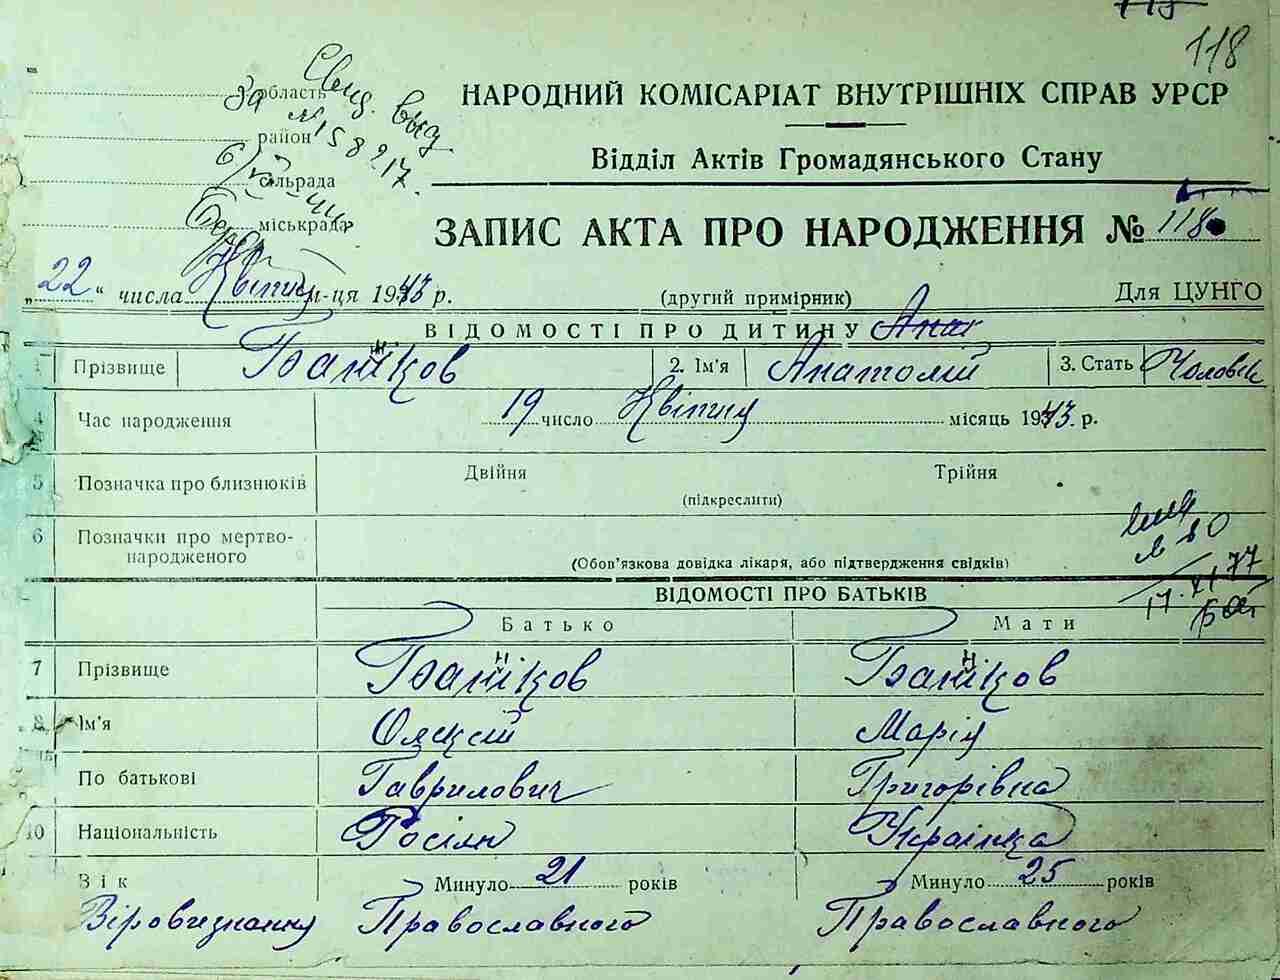 118
область
За Свид. выд.
район
№ 158217.
сільрада
міськрада
НАРОДНИЙ КОМІСАРІАТ ВНУТРІШНІХ СПРАВ УРСР
Відділ Актів Громадянського Стану
ЗАПИС АКТА ПРО НАРОДЖЕННЯ № 118
„22“ числа Квітня м-ця 1943 р.
(другий примірник)
Для ЦУНГО
ВІДОМОСТІ ПРО ДИТИНУ
1 Прізвище Банніков 2. Ім'я Анатолій 3. Стать Чоловік
4 Час народження 19 число Квітня місяць 1943. р.
5 Позначка про близнюків Двійня Трійня
(підкреслити)
6 Позначки про мертво-
народженого
(Обов'язкова довідка лікаря, або підтвердження свідків)
17.XI 77
ВІДОМОСТІ ПРО БАТЬКІВ
Батько Мати
7 Прізвище Банніков Банніков
8 Ім'я Олексій Марія
По батькові Гаврилович Григорівна
10 Національність Росіян Українка
Вік Минуло 21 років Минуло 25 років
Віровизнання Православного Православного